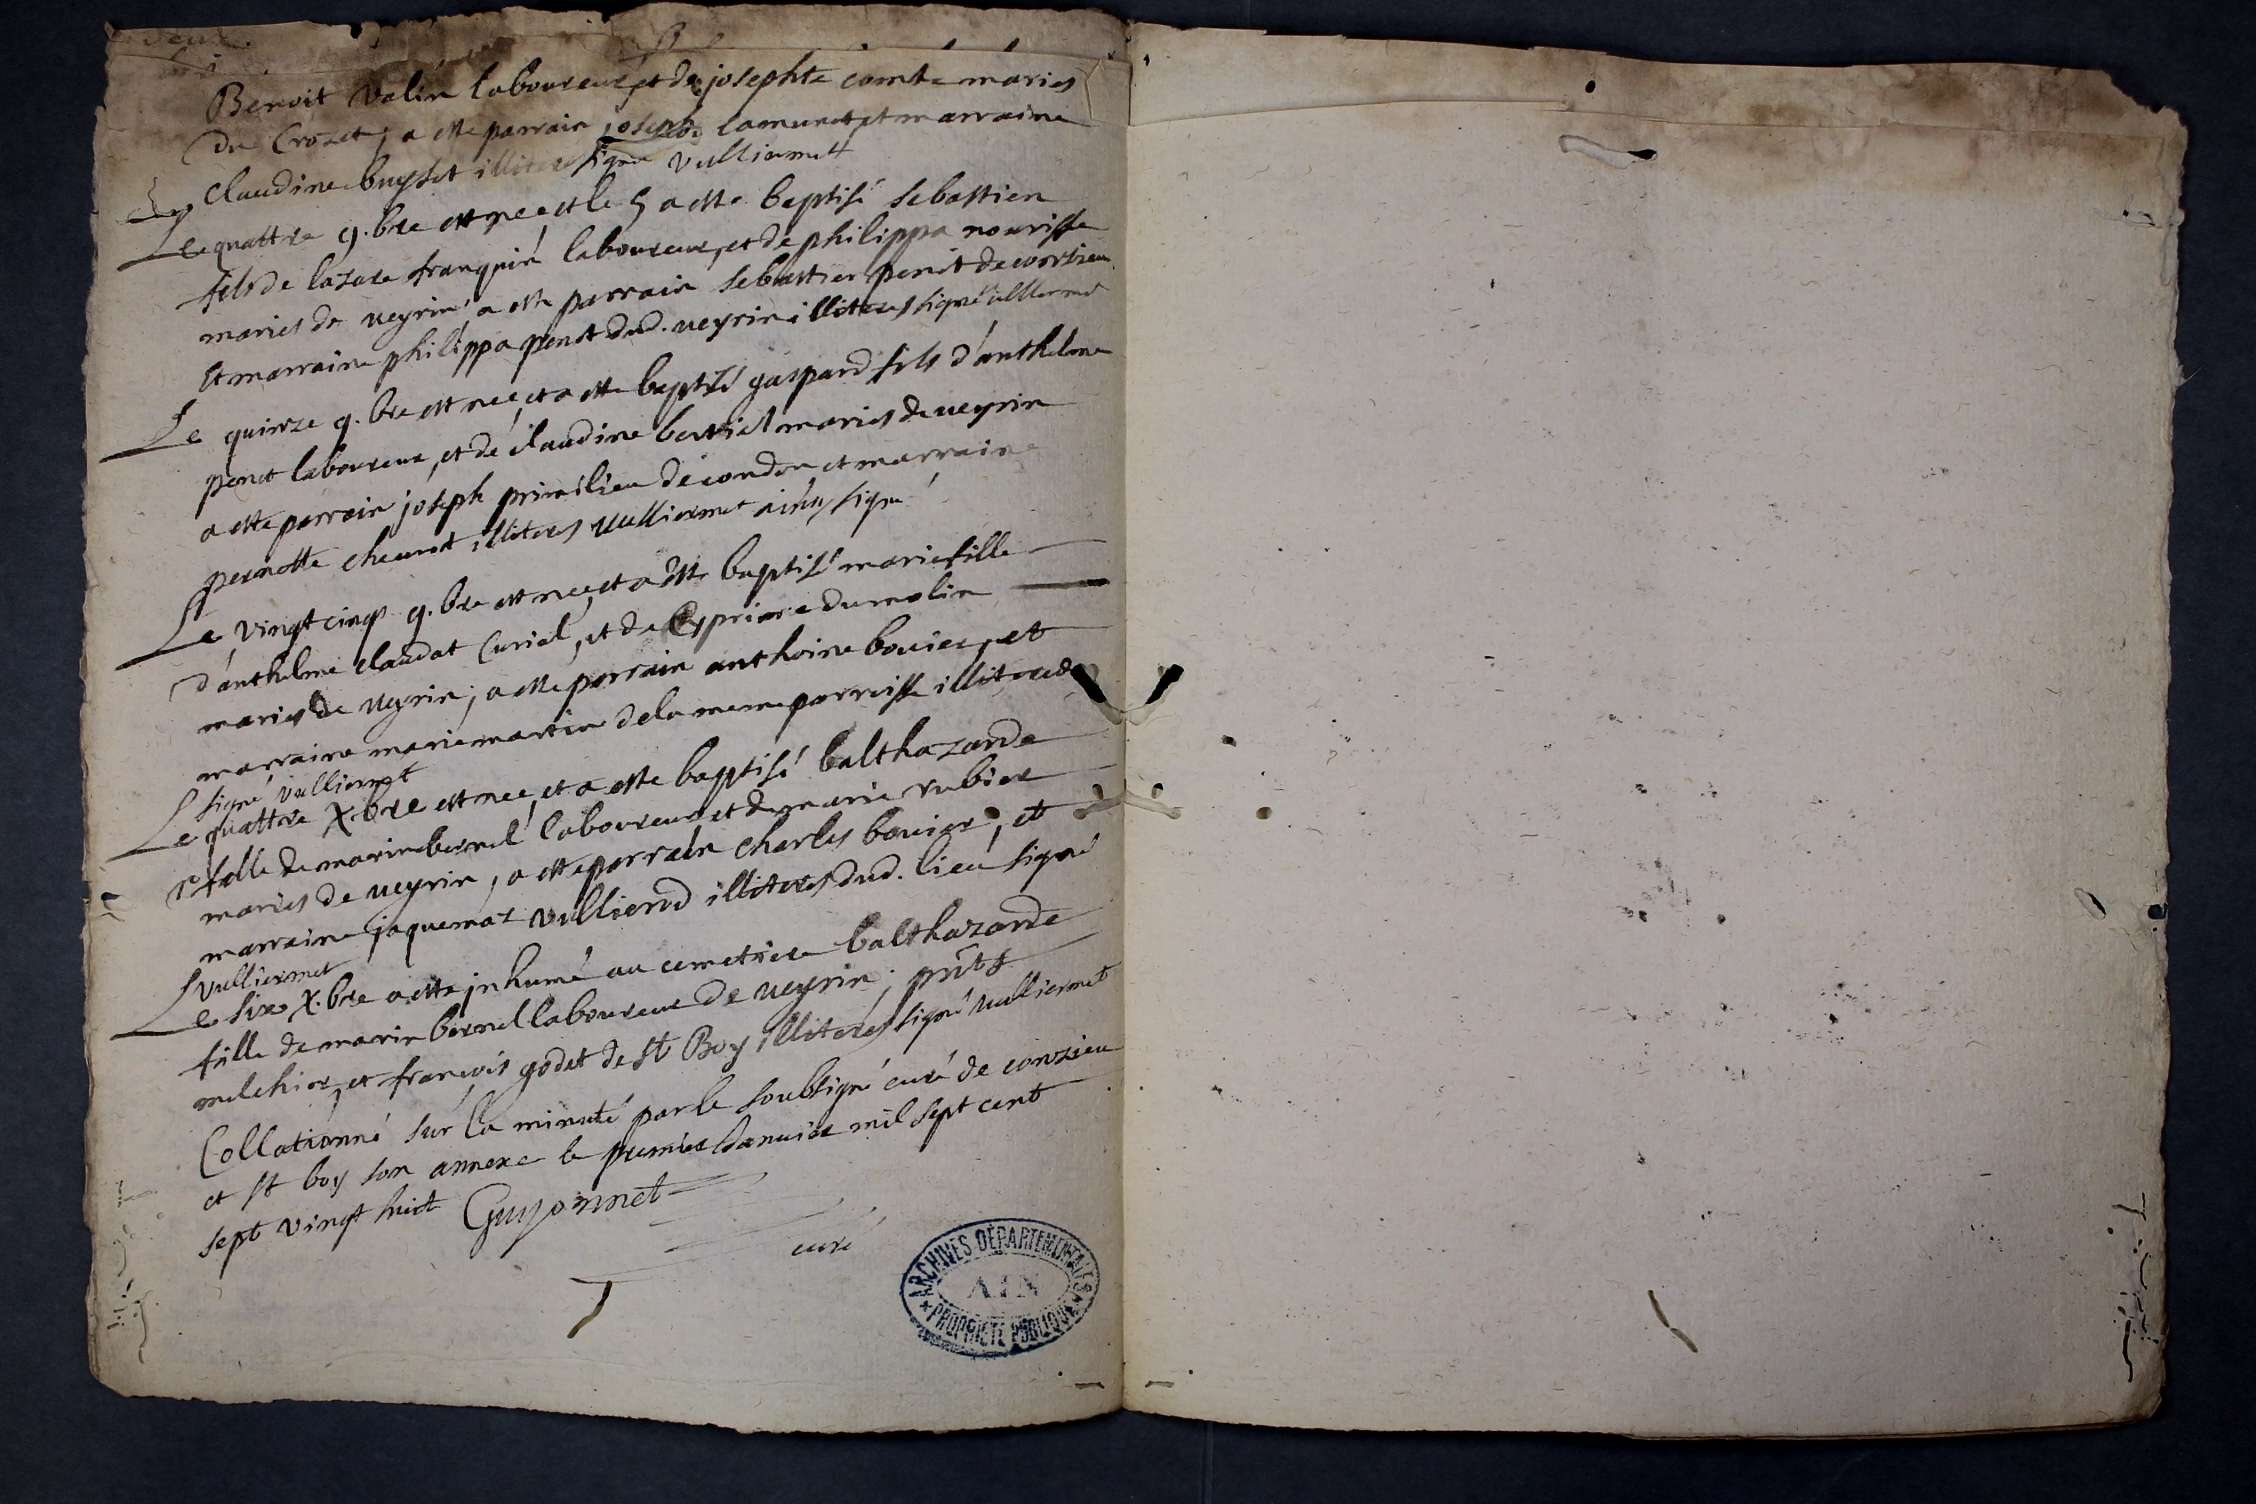 Benoit Valin laboureur, et de josephte comte maries
du Crozet; a esté parrain joseph lamunet et marraine
Claudine buyset illiteres signé vulliermet
Le quattre 9.bre est nee, et le 5 a esté baptisé sebastien
fils de lazare franquin laboureur, et de philippa nourisse
maries de veyrin a esté parrain sebastien penet de conzieu
et marraine philippa penet dud. veyrin illiteres signé vulliermet
Le quinze 9.bre est nee, et a esté baptisé gaspard fils d'anthelme
penet laboureur, et de claudine berthet maries de veyrin
a esté parrain joseph primilieu de condon et marraine
pernette chevrot illiteres vulliermet ainsy signé
Le vingt cinq 9.bre est nee, et a esté baptisé marie fille
d'anthelme claudat Curial, et de Cypriane dumolin
maries de veyrin; a esté parrain anthoine bovier, et
marraine marie martin de la meme parroisse illiteres
signé vulliermet
Le quattre X.bre est nee, et a esté baptisé balthazarde
fille de marin bernel laboureur et de marie rubier
maries de veyrin, a esté parrain charles bovier, et
marraine jaquemaz vullierod illiteres dud. lieu signé
vulliermet
Le six X.bre a esté jnhumé au cemetiere balthazarde
fille de marin bernel laboureur de veyrin; pnts
melchior, et francois godet de St Boy illiteres signé vulliermet
Collationné sur la minute par le soubsigné curé de conzieu
et st boy son annexe le premier Janvier mil sept cent
sept vingt huit Guyonnet
curé
ARCHIVES DÉPARTEMENTALES
AIN
PROPRIÉTÉ PUBLIQUE